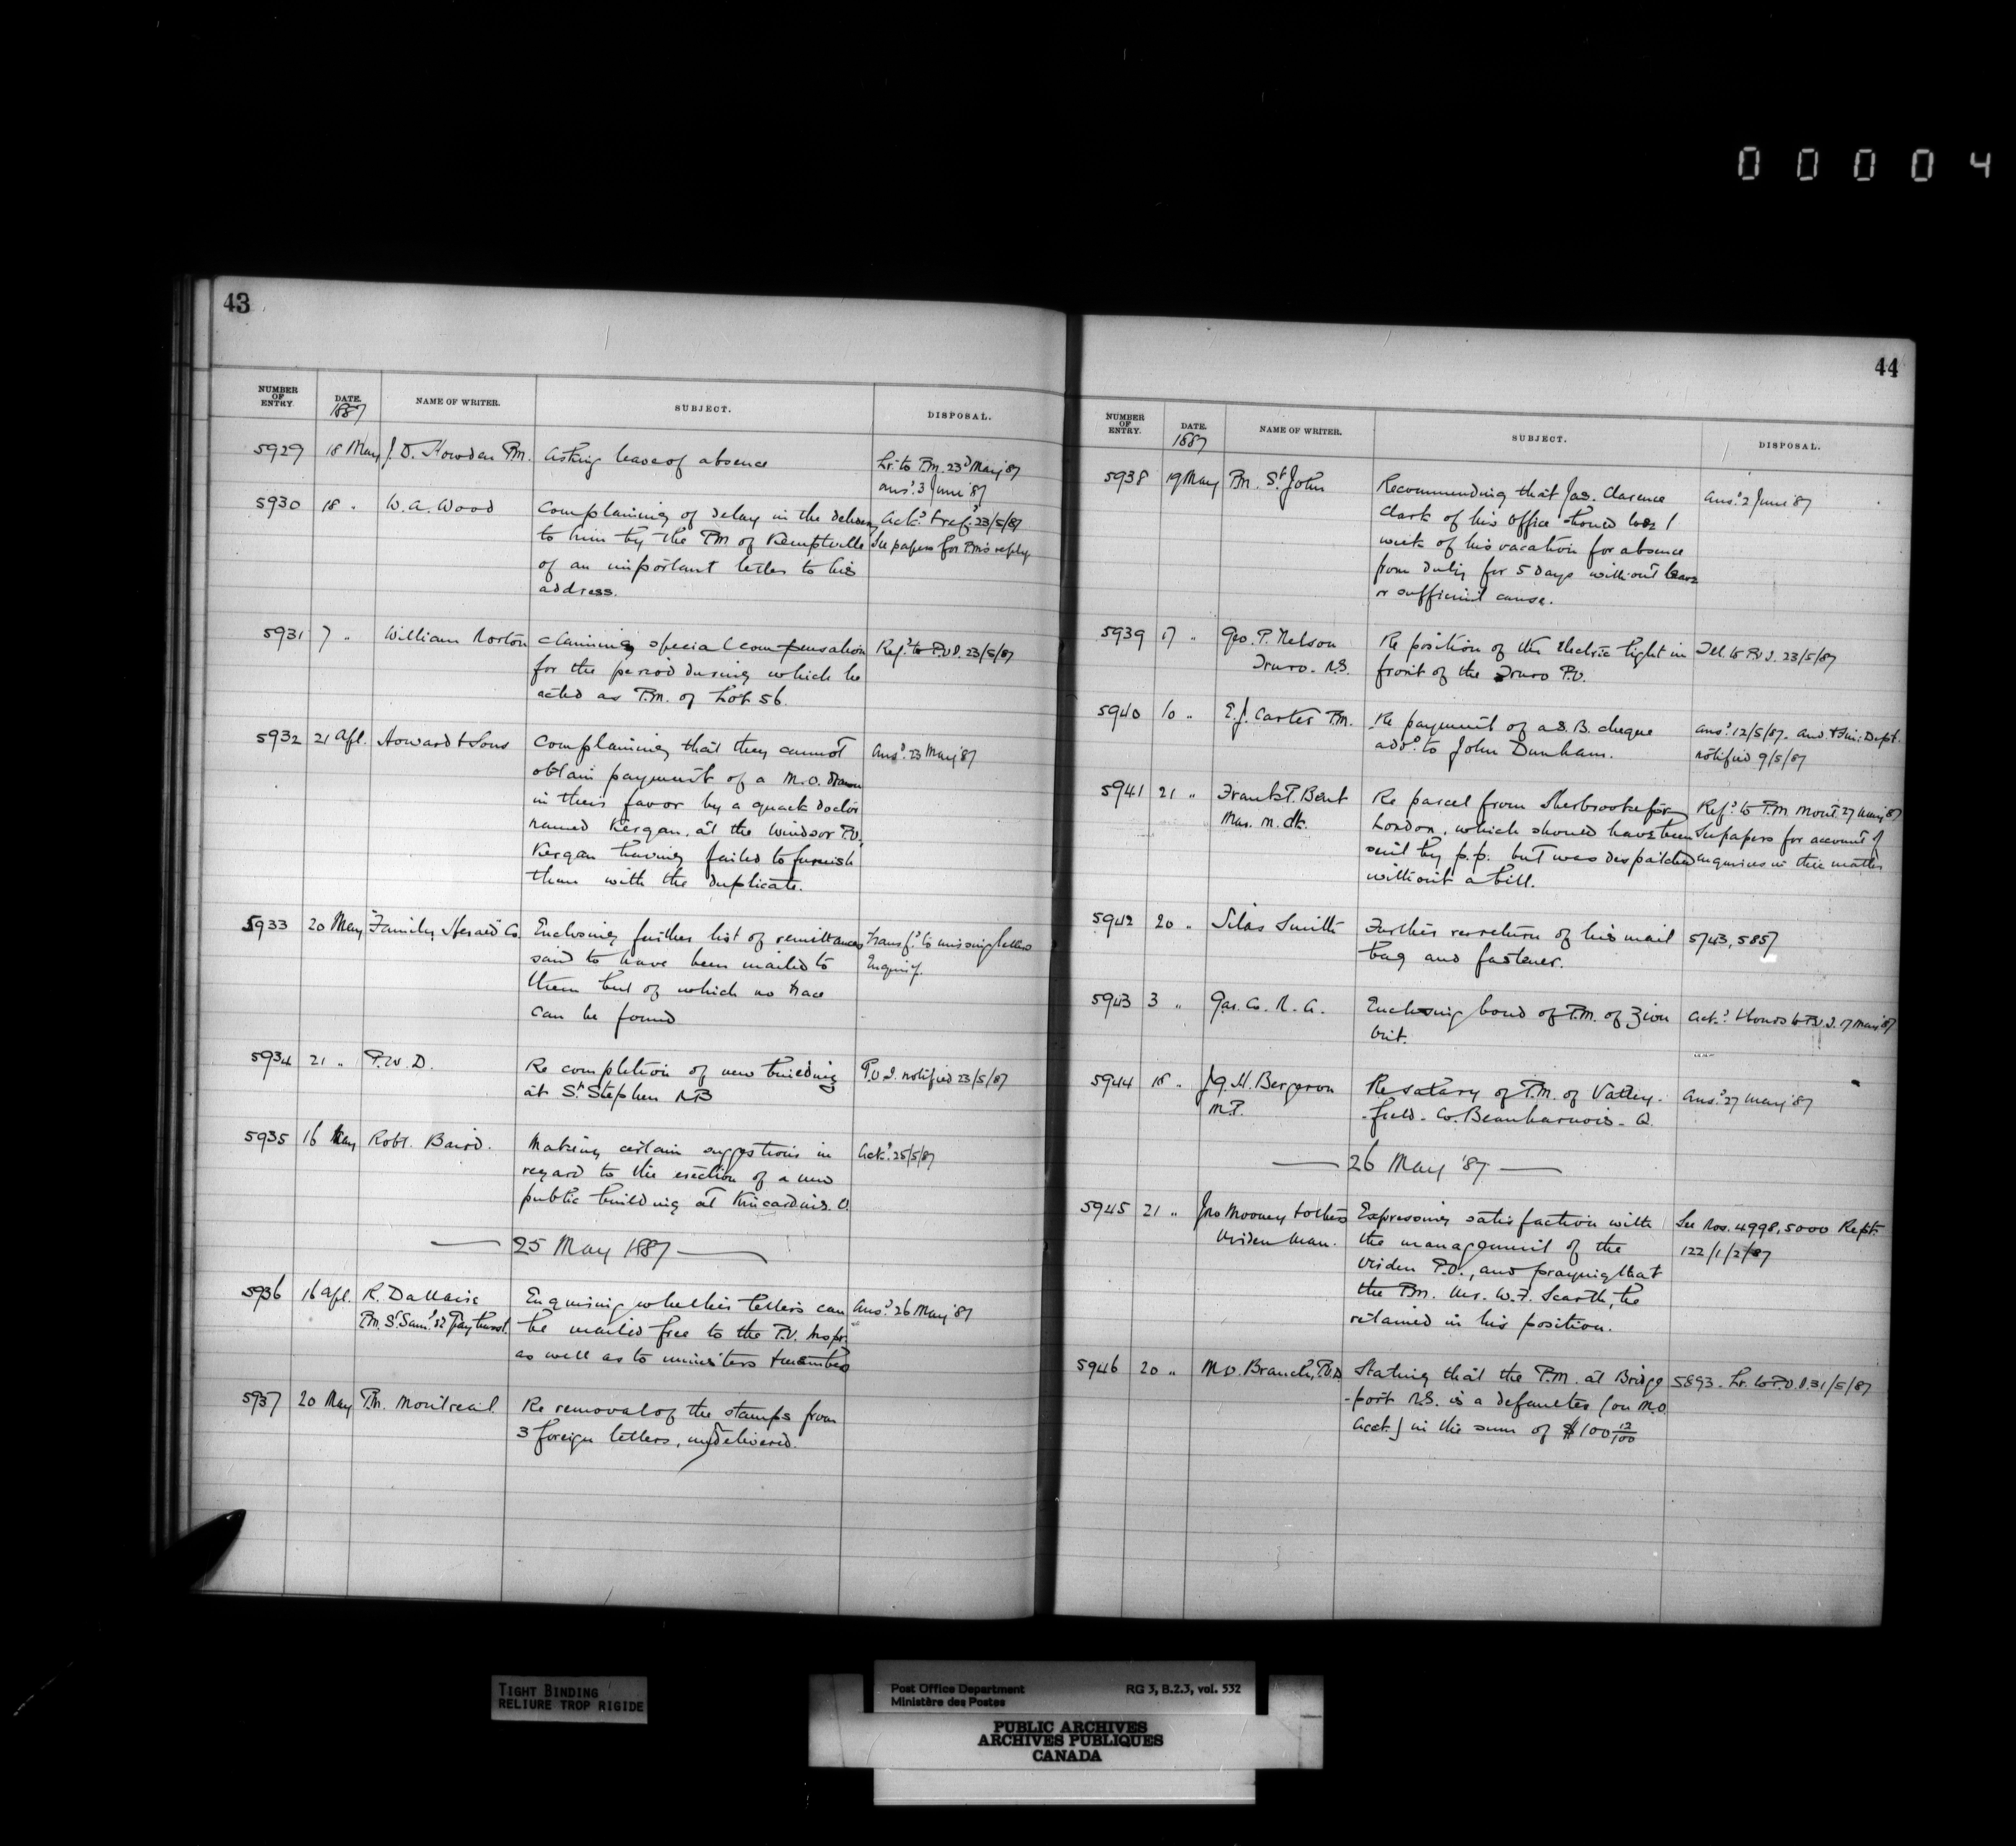 00004
43
NUMBER OF ENTRY DATE. 1887 NAME OF WRITER. SUBJECT. DISPOSAL.
5929 18 May J. D. Howden P.M. Asking leave of absence Lr. to P.M. 23d May '87
ansd. 3 June '87
5930 18 " W. A. Wood Complaining of delay in the delivery Ackd. & refd. 23/5/87
to him by the PM of Kemptville See papers for PM's reply
of an important letter to his
address.
5931 7 " William Norton claiming special compensation Refd. to P.O.I. 23/5/87
for the period during which he
acted as P.M. of Lot 56.
5932 21 Apl. Howard & Sons Complaining that they cannot Ansd. 23 May '87
obtain payment of a M.O. drawn
in their favor by a quack doctor
named Kergan, at the Windsor P.O.,
Kergan having failed to furnish
them with the duplicate.
5933 20 May "Family Herald" Co. Enclosing further list of remittances Transfd. to missing letters
said to have been mailed to Enquiry.
them but of which no trace
can be found
5934 21 " P.W.D. Re completion of new building P.O.I. notified 23/5/87
at St. Stephen NB
5935 16 May Robt. Baird. Making certain suggestions in Ackd. 25/5/87
regard to the erection of a new
public building at Kincardine. O.
25 May 1887
5936 16 Apl. R. Dallaire Enquiring whether letters can Ansd. 26 May '87
P.M. St. Saml. de be mailed free to the P.O. Inspr.
as well as to ministers & members
5937 20 May P.M. Montreal Re removal of the stamps from
3 foreign letters, undelivered.
44
NUMBER OF ENTRY. DATE. 1887 NAME OF WRITER. SUBJECT. DISPOSAL.
5938 19 May P.M. St. John Recommending that Jas. Clarence Ansd. 2 June '87
Clark of his Office should lose 1
week of his vacation for absence
from duty for 5 days without leave
or sufficient cause.
5939 17 " Geo. P. Nelson Re position of the Electric light in Tel. to P.O.I. 23/5/87
Truro. N.S. front of the Truro P.O.
5940 10 " E. J. Carter P.M. Re payment of a S.B. cheque Ansd. 12/5/87. and Fin: Dept.
addd. to John Dunham. notified 9/5/87
5941 21 " Frank P. Bent Re parcel from Sherbrooke for Refd. to P.M. Mont. 27 May '87
Mar. M. Clk. London, which should have been See papers for account of
sent by p.p. but was despatched enquiries in this matter
without a bill.
5942 20 " Silas Smith Further re return of his mail 5743, 5857
bag and fastener.
5943 3 " Gar. Co. N. A. Enclosing bond of P.M. of Zion Ackd. & bond to P.O.I. 17 May '87
Ont.
5944 18 " J. G. H. Bergeron Re salary of P.M. of Valley- Ansd. 27 May '87
M.P. -field - Co. Beauharnois - Q.
26 May '87
5945 21 " Jno Mooney & others Expressing satisfaction with See Nos. 4998, 5000 Rept.
Virden Man. the management of the 122/1/2/87
Virden P.O., and praying that
the P.M. Mr. W. F. Scarth, be
retained in his position.
5946 20 " M.O. Branch, P.O.D. Stating that the P.M. at Bridge 5893. Lr. to P.O.I. 31/5/87
-port N.S. is a defaulter (on M.O.
Acct.) in the sum of $100 12/100
TIGHT BINDING
RELIURE TROP RIGIDE
Post Office Department RG 3, B.2.3, vol. 532
Ministère des Postes
PUBLIC ARCHIVES
ARCHIVES PUBLIQUES
CANADA